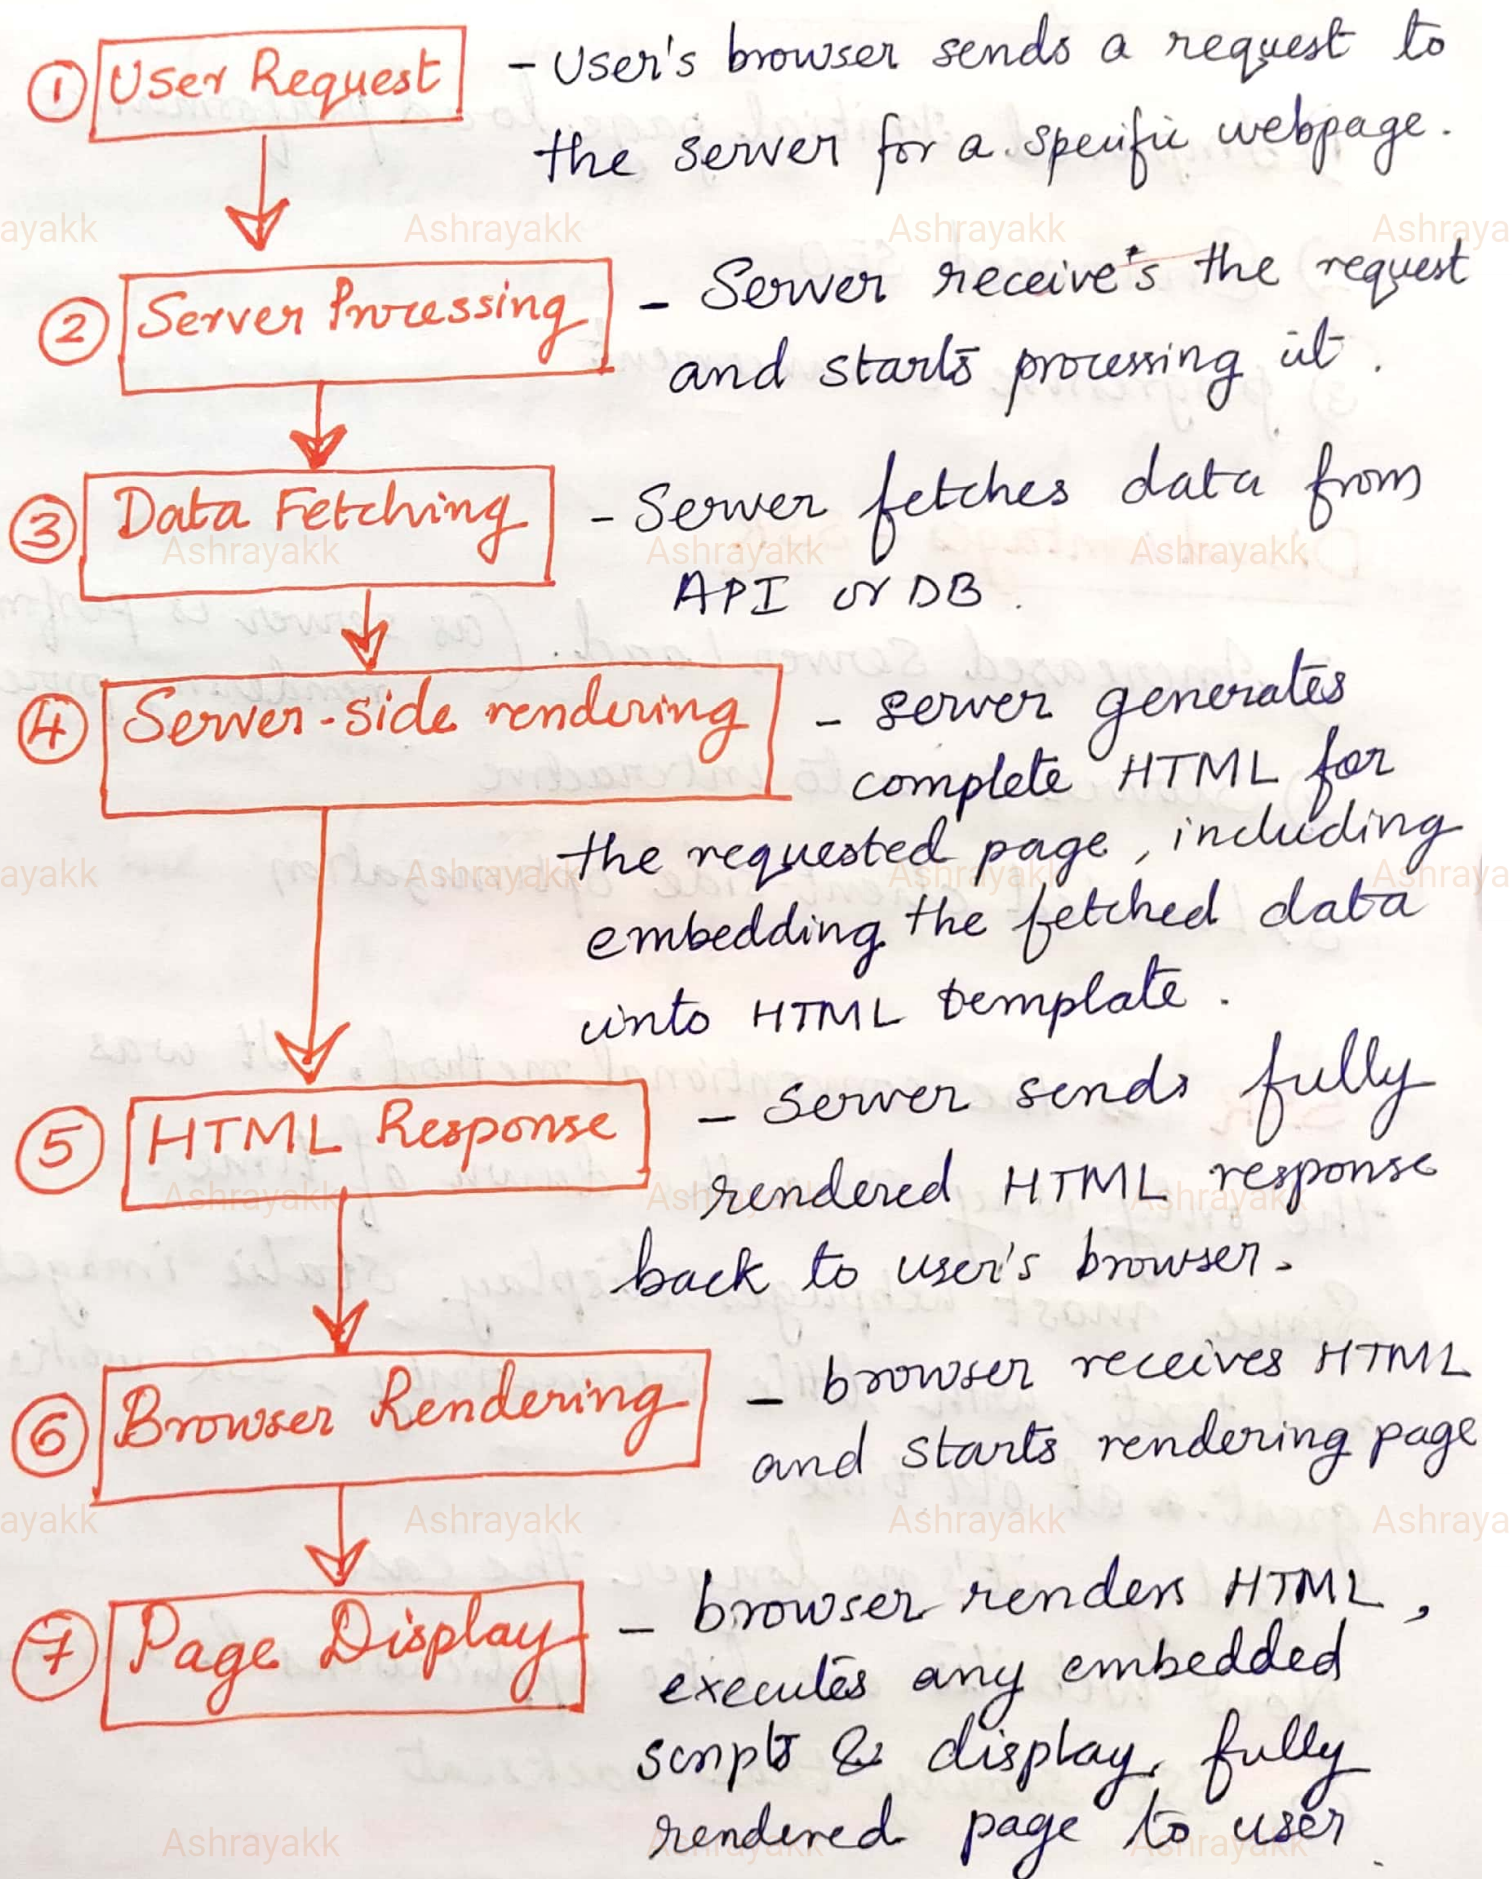 ① User Request - User's browser sends a request to
the server for a specific webpage.
② Server Processing - Server receive's the request
and starts processing it.
③ Data Fetching - Server fetches data from
API or DB.
④ Server-side rendering - server generates
complete HTML for
the requested page, including
embedding the fetched data
into HTML template.
⑤ HTML Response - server sends fully
rendered HTML response
back to user's browser.
⑥ Browser Rendering - browser receives HTML
and starts rendering page
⑦ Page Display - browser renders HTML,
executes any embedded
scripts & display fully
rendered page to user.
Ashrayakk